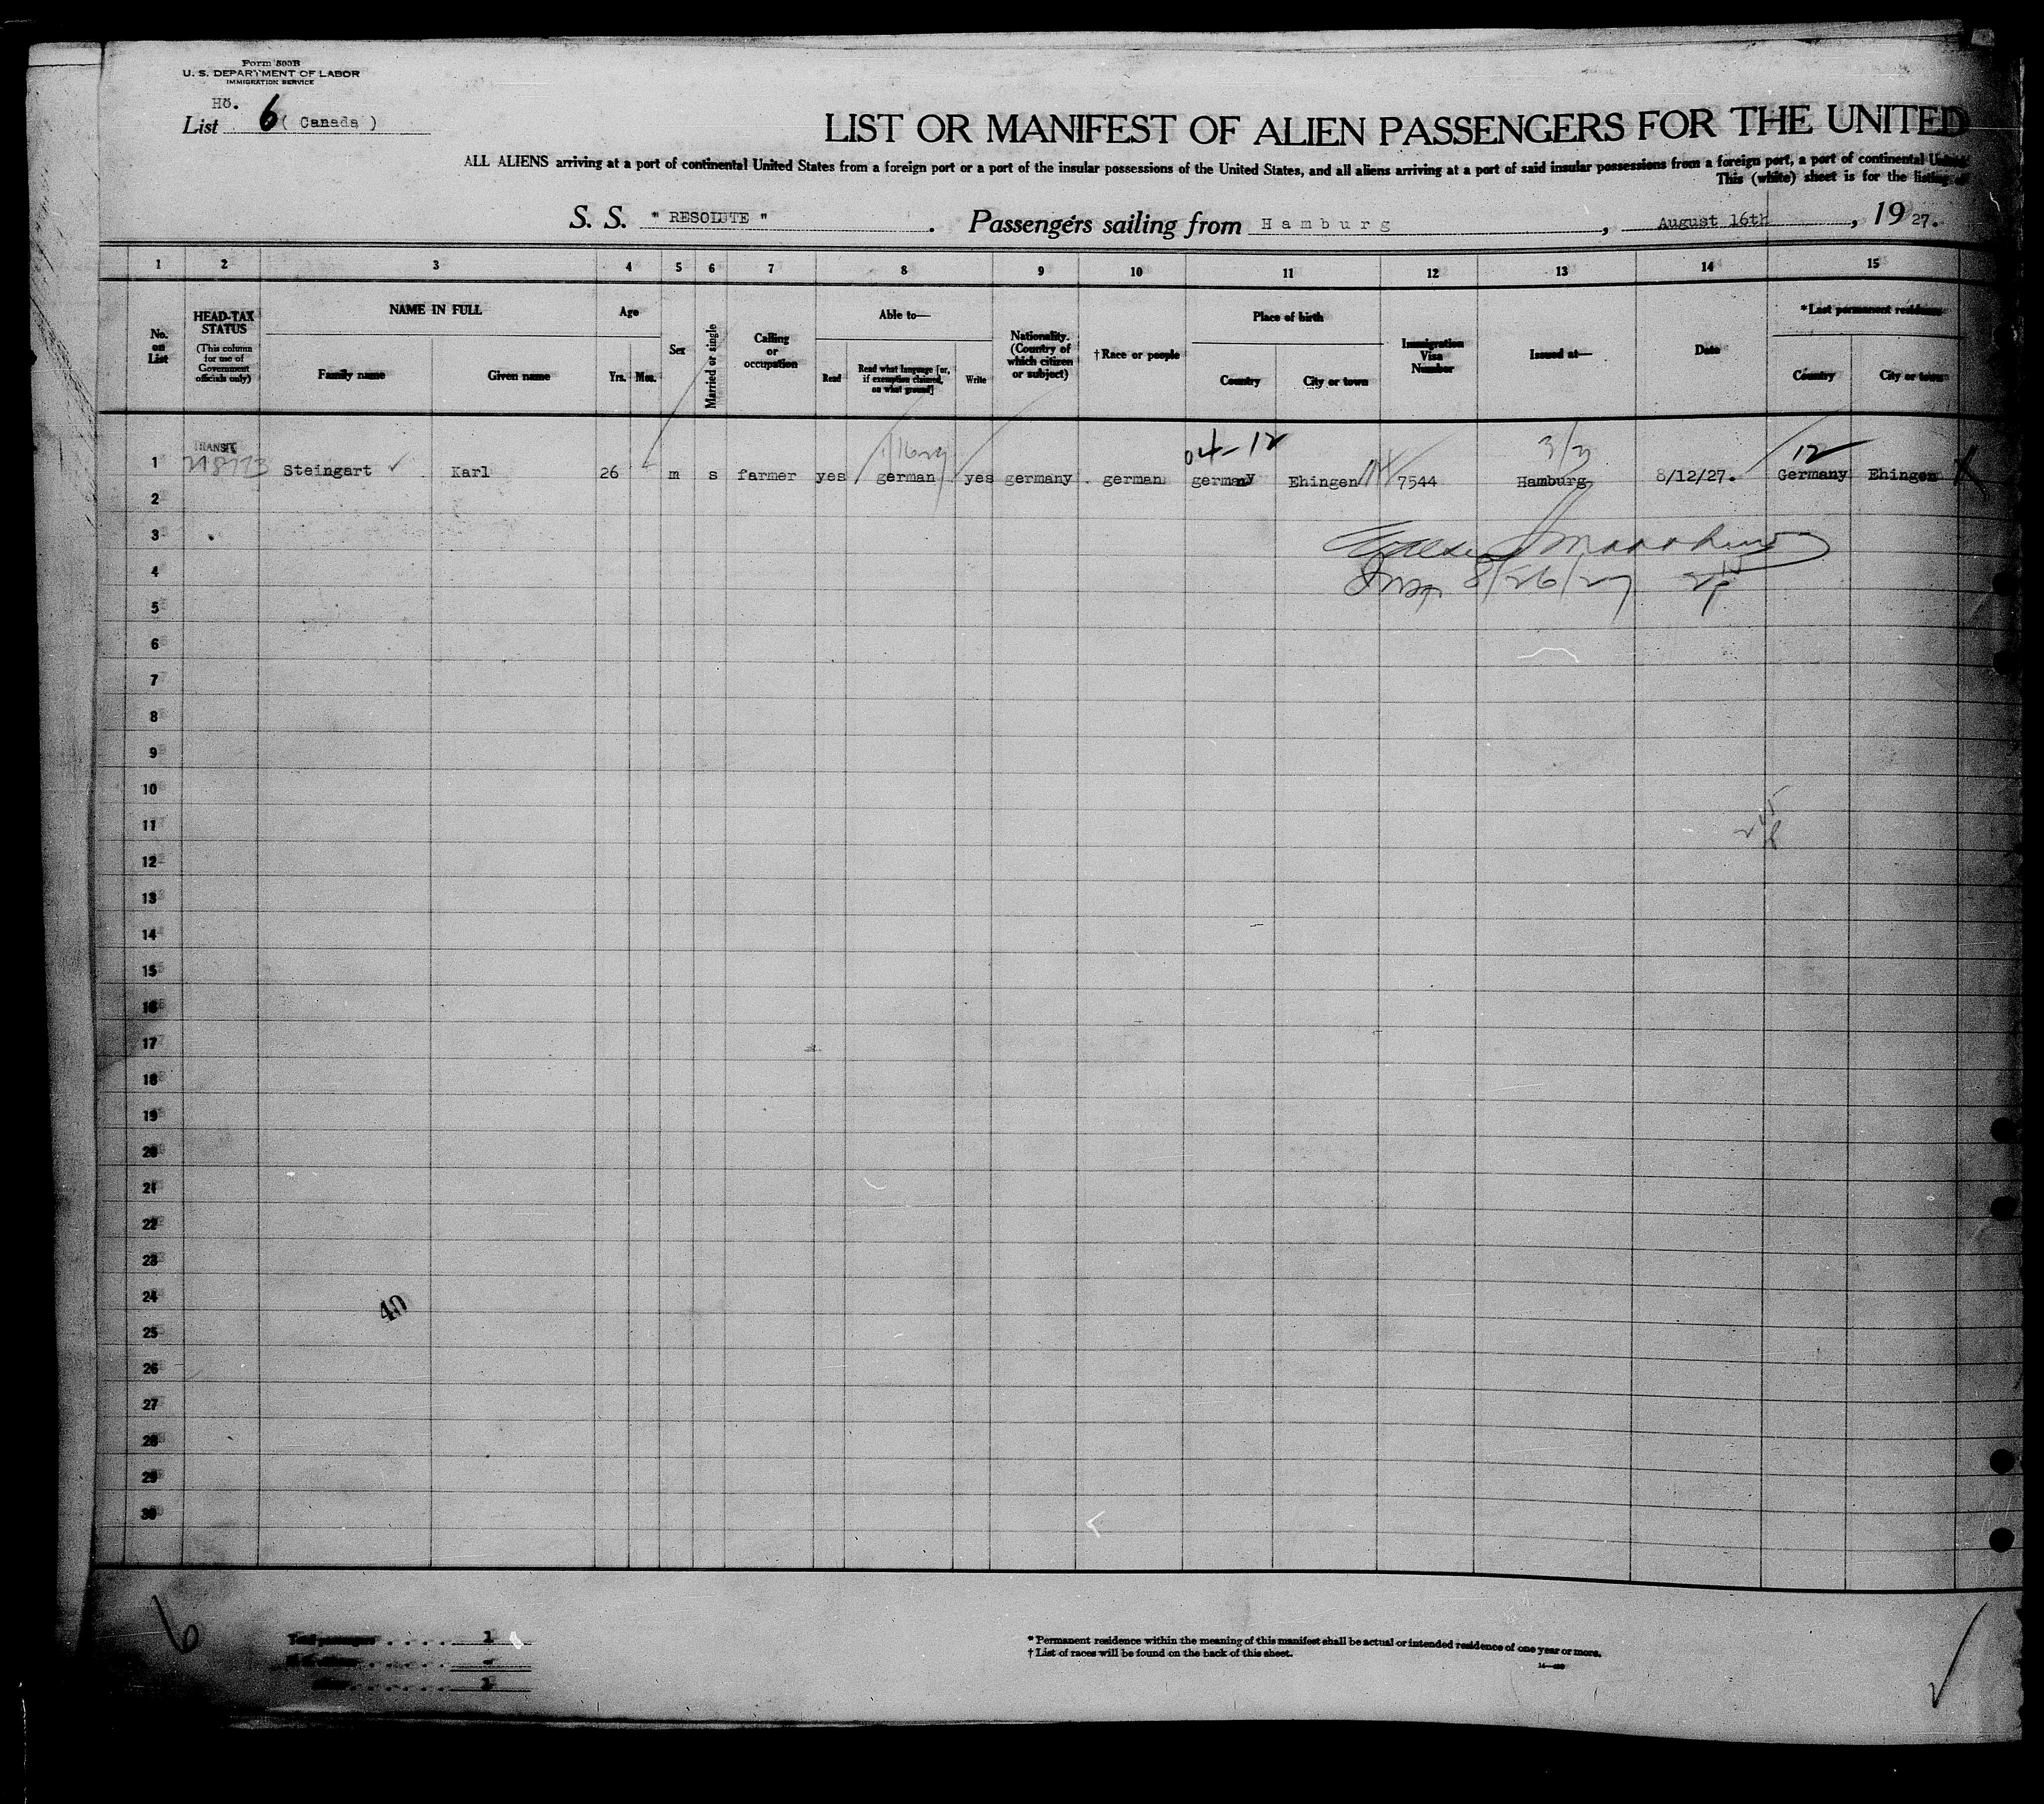 Form 500B
U. S. DEPARTMENT OF LABOR
IMMIGRATION SERVICE
Hö.
List 6 ( Canada )
LIST OR MANIFEST OF ALIEN PASSENGERS FOR THE UNITED
ALL ALIENS arriving at a port of continental United States from a foreign port or a port of the insular possessions of the United States, and all aliens arriving at a port of said insular possessions from a foreign port, a port of continental United
This (white) sheet is for the listing of
S. S. " RESOLUTE " . Passengers sailing from Hamburg , August 16th , 1927.
1 2 3 4 5 6 7 8 9 10 11 12 13 14 15
No. on List
HEAD-TAX STATUS
(This column for use of Government officials only)
NAME IN FULL
Family name Given name
Age
Yrs. Mos.
Sex
Married or single
Calling or occupation
Able to—
Read
Read what language [or, if exemption claimed, on what ground]
Write
Nationality. (Country of which citizen or subject)
† Race or people
Place of birth
Country City or town
Immigration Visa Number
Issued at—
Date
*Last permanent residence
Country City or town
TRANSIT
04-12 3/3 12
1 Steingart Karl 26 m s farmer yes german yes germany german germany Ehingen 7544 Hamburg 8/12/27. Germany Ehingen
2
3
4
8/26/27
5
6
7
8
9
10
11
12
13
14
15
16
17
18
19
20
21
22
23
24
40
25
26
27
28
29
30
6
Total passengers 1
1
* Permanent residence within the meaning of this manifest shall be actual or intended residence of one year or more.
† List of races will be found on the back of this sheet.